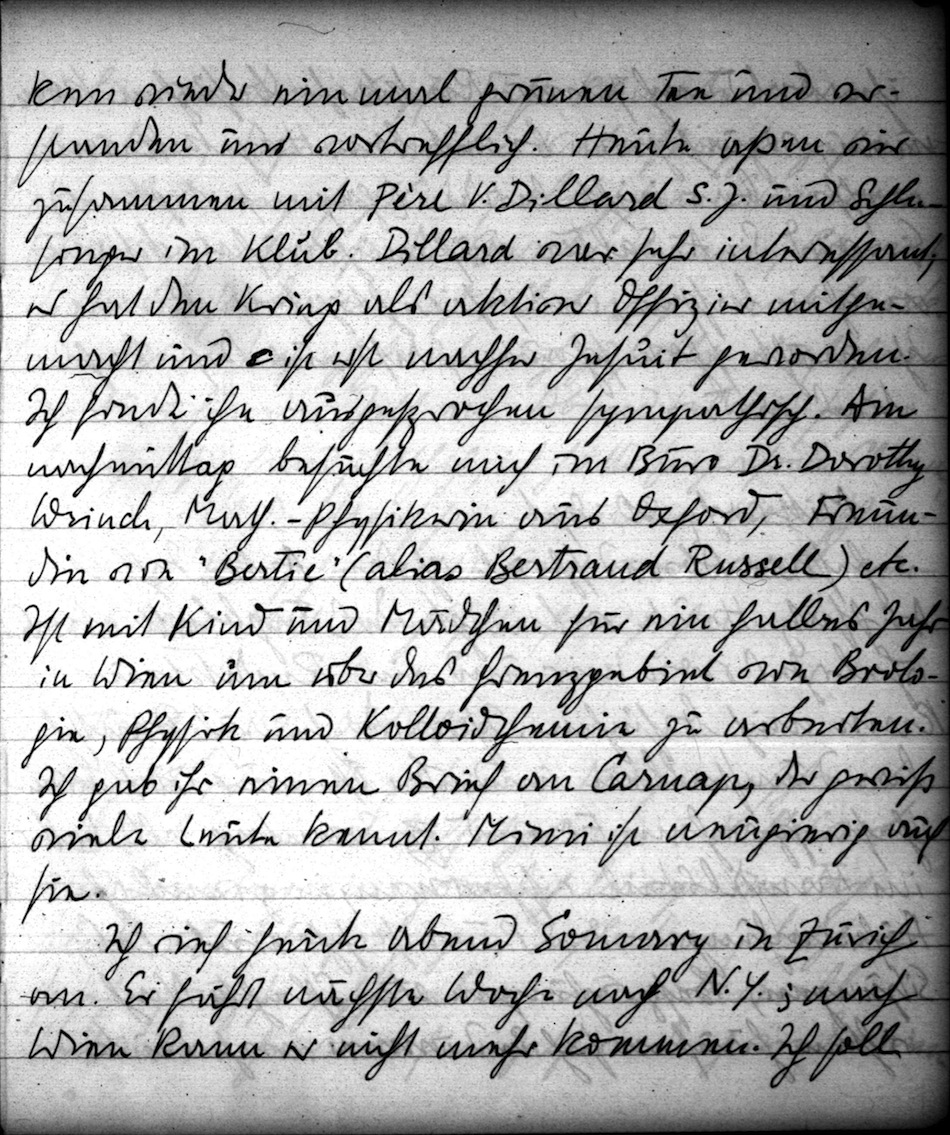 ken wieder einmal grünen Tee und ver-
standen uns vortrefflich. Heute aßen wir
zusammen mit Père V. Dillard S.J. und Schle-
singer im Klub. Dillard war sehr interessant;
er hat den Krieg als aktiver Offizier mitge-
macht und ist erst nachher Jesuit geworden.
Ich fand ihn ausgesprochen sympathisch. Am
nachmittag besuchte mich im Büro Dr. Dorothy
Wrinch, Math.-Physikerin aus Oxford, Freun-
din von "Bertie" (alias Bertrand Russell) etc.
Ist mit Kind und Mädchen für ein halbes Jahr
in Wien um über das Grenzgebiet von Biolo-
gie, Physik und Kolloidchemie zu arbeiten.
Ich gab ihr einen Brief an Carnap, der gewiß
viele Leute kennt. Mimi ist neugierig auf
sie.
Ich rief heute abend Somary in Zürich
an. Er fährt nächste Woche nach N.Y.; nach
Wien kann er nicht mehr kommen. Ich soll